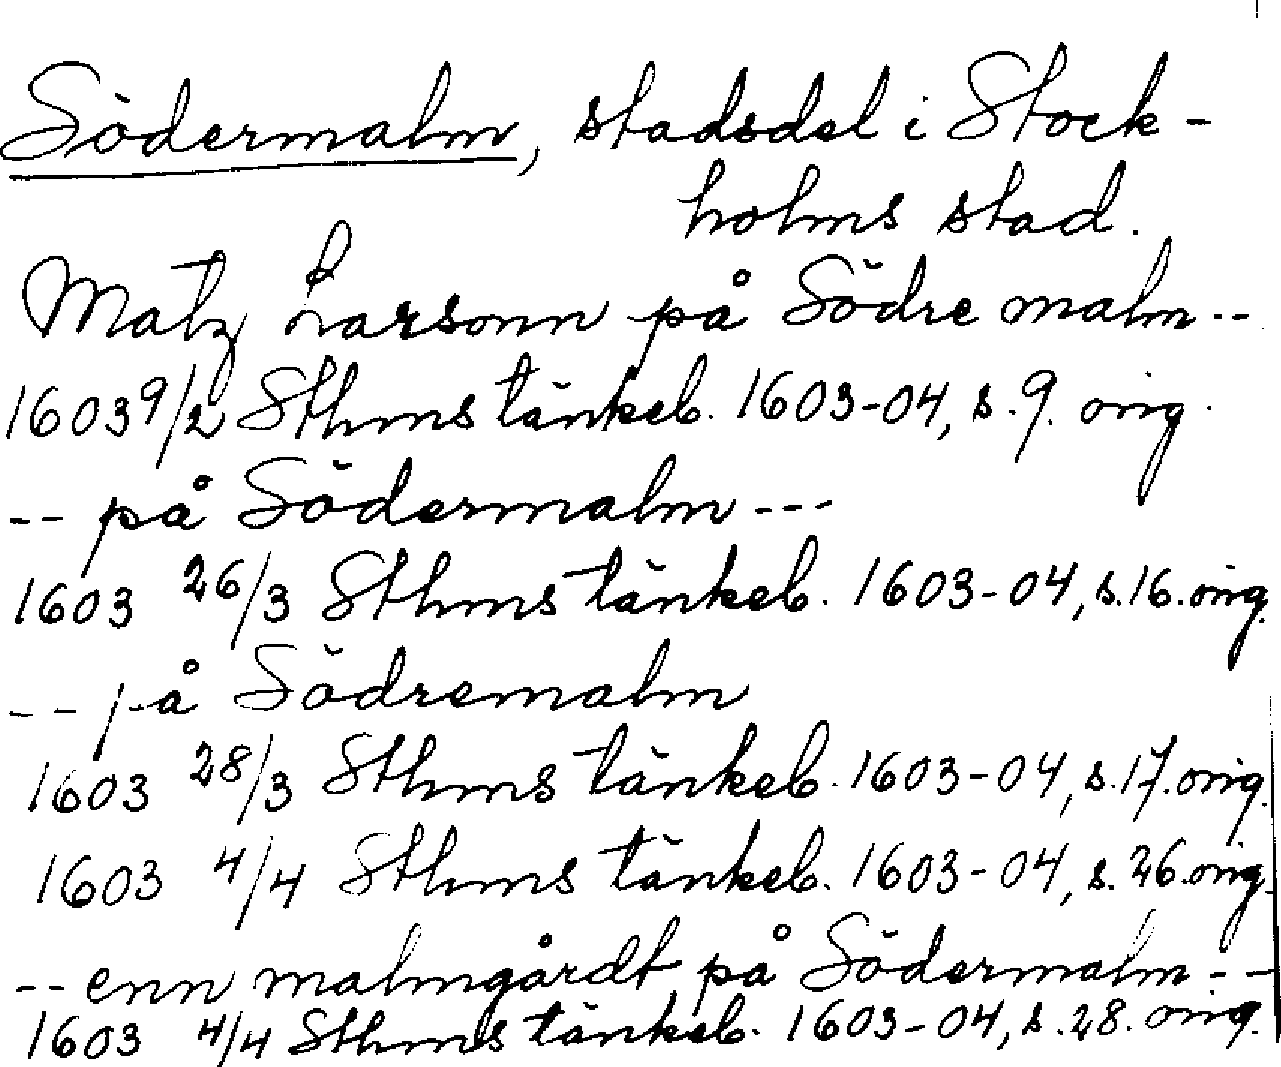 Södermalm, stadsdel i Stock-
holms stad.
Matz Larsonn på Södre malm --
1603 9/2 Sthms tänkeb. 1603-04, s. 9. orig.
-- på Södermalm ---
1603 26/3 Sthms tänkeb. 1603-04, s. 16. orig.
-- på Södremalm
1603 28/3 Sthms tänkeb. 1603-04, s. 17. orig.
1603 4/4 Sthms tänkeb. 1603-04, s. 26. orig.
-- enn malmgårdt på Södermalm --
1603 4/4 Sthms tänkeb. 1603-04, s. 28. orig.